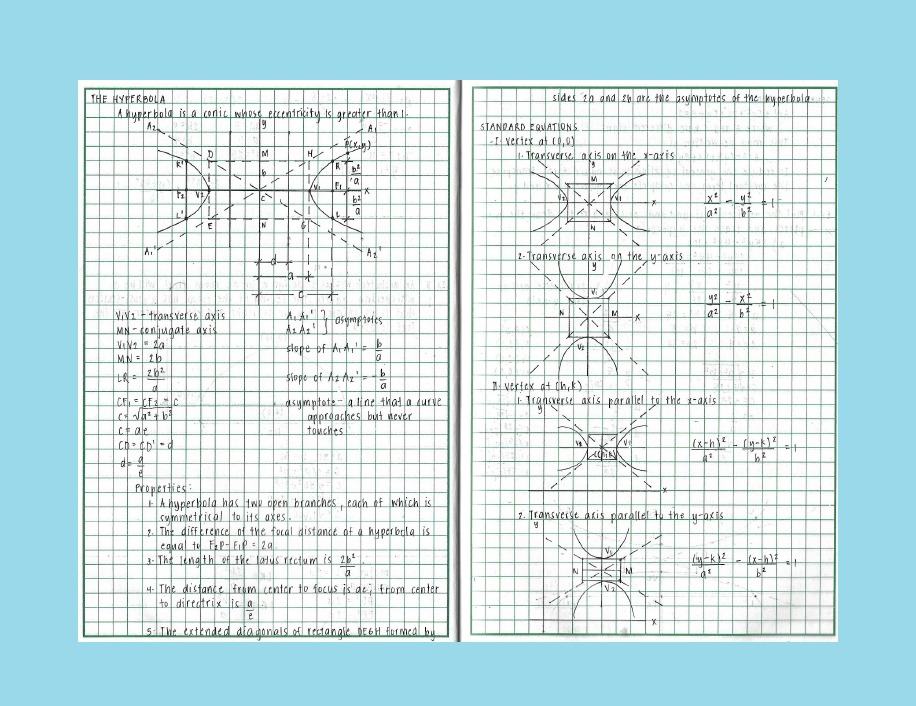 THE HYPERBOLA
A hyperbola is a conic whose eccentricity is greater than 1.
y
A2
A1
P(x,y)
D
M
H
R'
R
b²/a
b
F2
V2
C
V1
F1
x
b²/a
L'
L
E
N
G
A1'
A2'
d
a
c
V1V2 - transverse axis
MN - conjugate axis
V1V2 = 2a
MN = 2b
LR = 2b²/a
CF1 = CF2 = c
c = √a² + b²
c = ae
CD = CD' = d
d = a/e
A1 A1'
A2 A2' } asymptotes
slope of A1 A1' = b/a
slope of A2 A2' = - b/a
asymptote - a line that a curve
approaches but never
touches
Properties:
1. A hyperbola has two open branches, each of which is
symmetrical to its axes.
2. The difference of the focal distance of a hyperbola is
equal to F2P - F1P = 2a.
3. The length of the latus rectum is 2b²/a.
4. The distance from center to focus is ae; from center
to directrix is a/e.
5. The extended diagonals of rectangle DEGH formed by
sides 2a and 2b are the asymptotes of the hyperbola.
STANDARD EQUATIONS
I. vertex at (0,0)
1. Transverse axis on the x-axis
y
M
V2
V1
x
N
x²/a² - y²/b² = 1
2. Transverse axis on the y-axis
y
V1
N
M
x
V2
y²/a² - x²/b² = 1
II. vertex at (h,k)
1. Transverse axis parallel to the x-axis
y
V2
V1
C(h,k)
x
(x-h)²/a² - (y-k)²/b² = 1
2. Transverse axis parallel to the y-axis
y
V1
N
M
V2
x
(y-k)²/a² - (x-h)²/b² = 1